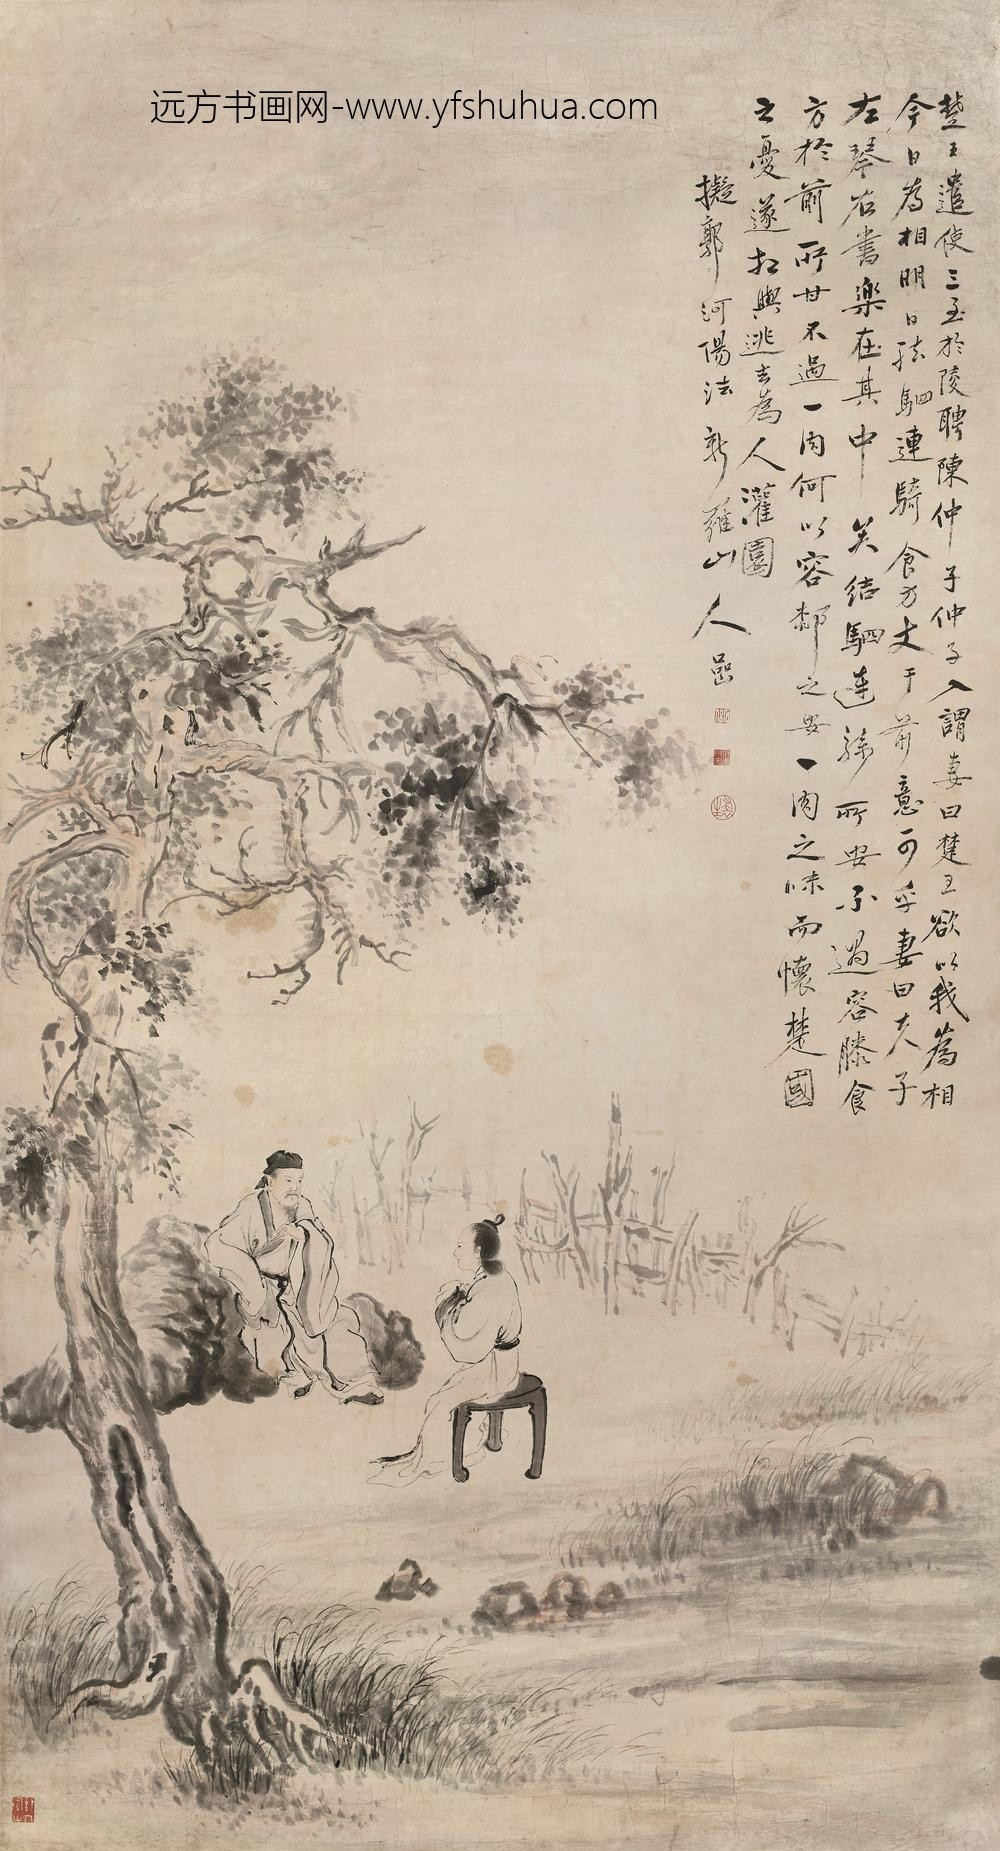 远方书画网-www.yfshuhua.com
楚王遣使三至於陵聘陳仲子仲子入謂妻曰楚王欲以我為相
今日為相明日結駟連騎食方丈于前意可乎妻曰夫子
左琴右書樂在其中矣結駟連騎所安不過容膝食
方於前所甘不過一肉何以容膝之安一肉之味而懷楚國
之憂遂相與逃去為人灌園
擬郭河陽法新羅山人嵒